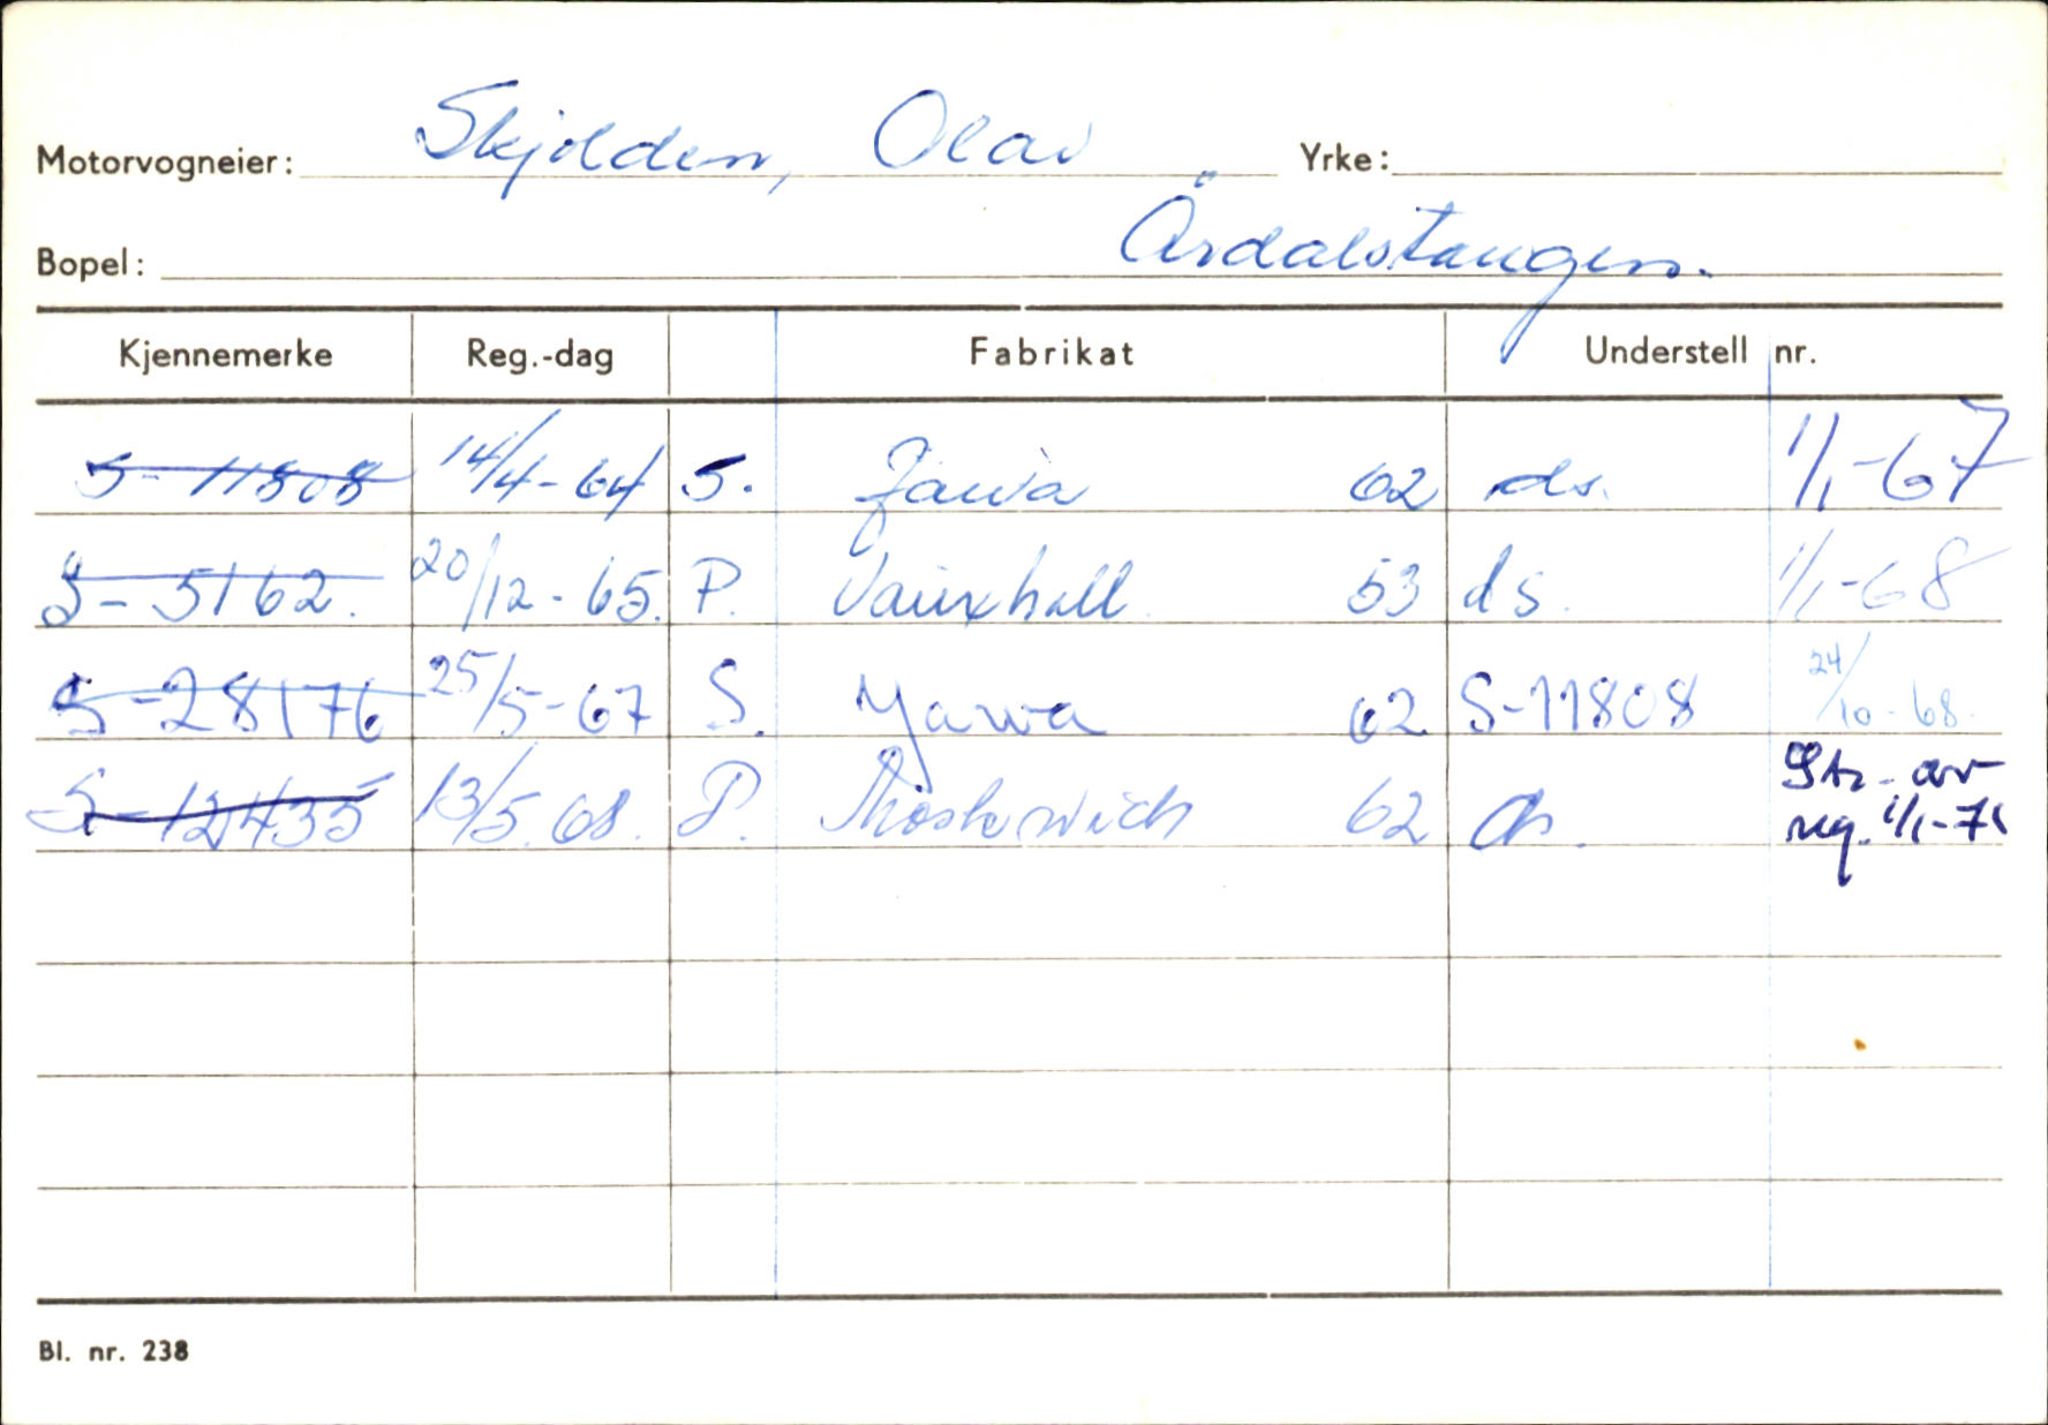 Motorvogneier: Skjolden, Olav Yrke:
Bopel: Årdalstangen.
Kjennemerke Reg.-dag Fabrikat Understell nr.
S-11808 14/4-64 S. Jawa 62 ds. 1/1-67
S-5162. 20/12-65. P. Vauxhall 53 ds. 1/1-68
S-28176 25/5-67 S. Yawa 62 S-11808 24/10-68.
S-12435 13/5.68. P. Moskwich 62 ds. Str. av
reg. 1/1-71
Bl. nr. 238